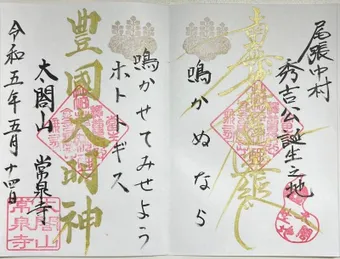 尾張中村
秀吉公誕生之地
南無妙法蓮華経
鳴かぬなら
鳴かせてみせよう
ホトトギス
豊國大明神
太閤山 常泉寺
令和五年五月十四日
太閤山
常泉寺